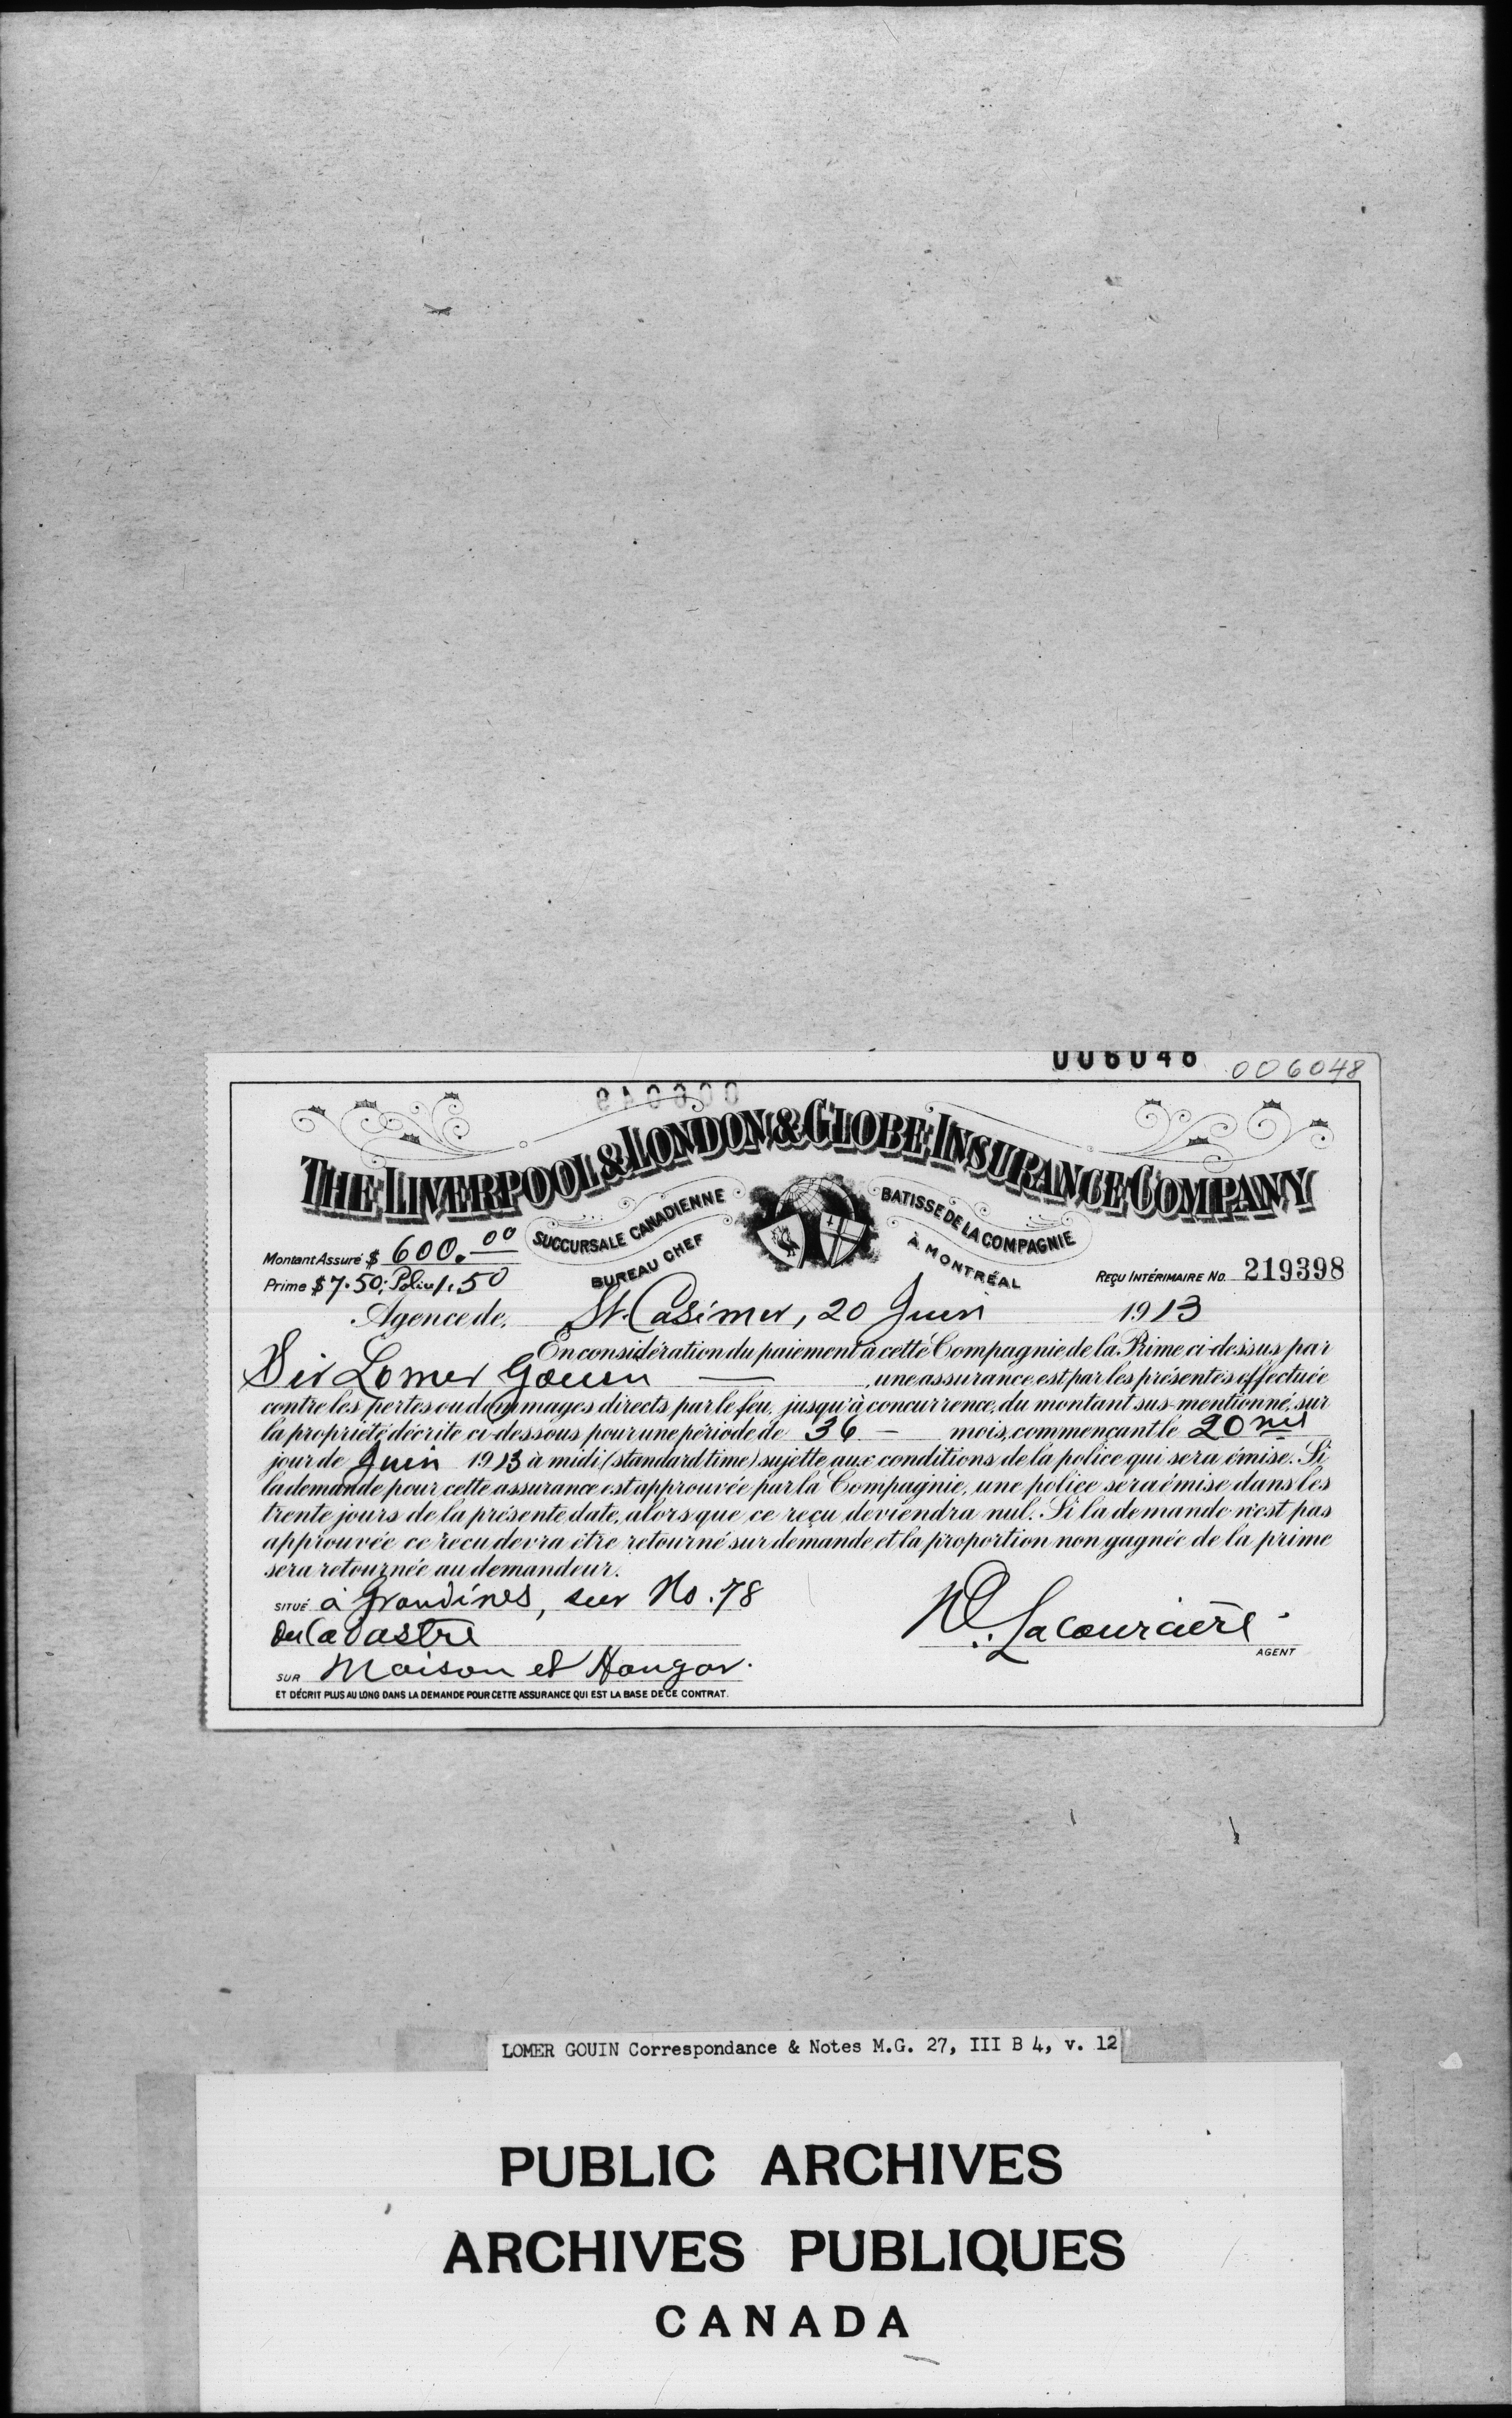 006048 006048
THE LIVERPOOL & LONDON & GLOBE INSURANCE COMPANY
SUCCURSALE CANADIENNE
BATISSE DE LA COMPAGNIE
BUREAU CHEF
À MONTRÉAL
Montant Assuré $ 600.00
Prime $ 7.50; Police 1.50
REÇU INTÉRIMAIRE NO. 219398
Agence de St. Casimer, 20 Juin 1913
En considération du paiement à cette Compagnie de la Prime ci-dessus par
Sir Lomer Gouin — une assurance est par les présentes effectuée
contre les pertes ou dommages directs par le feu, jusqu'à concurrence, du montant sus-mentionné, sur
la propriété décrite ci-dessous pour une période de 36 — mois, commençant le 20me
jour de Juin 1913 à midi (standard time) sujette aux conditions de la police qui sera émise. Si
la demande pour cette assurance est approuvée par la Compagnie, une police sera émise dans les
trente jours de la présente date, alors que ce reçu deviendra nul. Si la demande n'est pas
approuvée ce reçu devra être retourné sur demande, et la proportion non gagnée de la prime
sera retournée au demandeur.
SITUÉ à Grondines, sur No. 78
du Cadastre
Lacourcière
AGENT
SUR Maison et Hangar.
ET DÉCRIT PLUS AU LONG DANS LA DEMANDE POUR CETTE ASSURANCE QUI EST LA BASE DE CE CONTRAT.
LOMER GOUIN Correspondance & Notes M.G. 27, III B 4, v. 12
PUBLIC ARCHIVES
ARCHIVES PUBLIQUES
CANADA